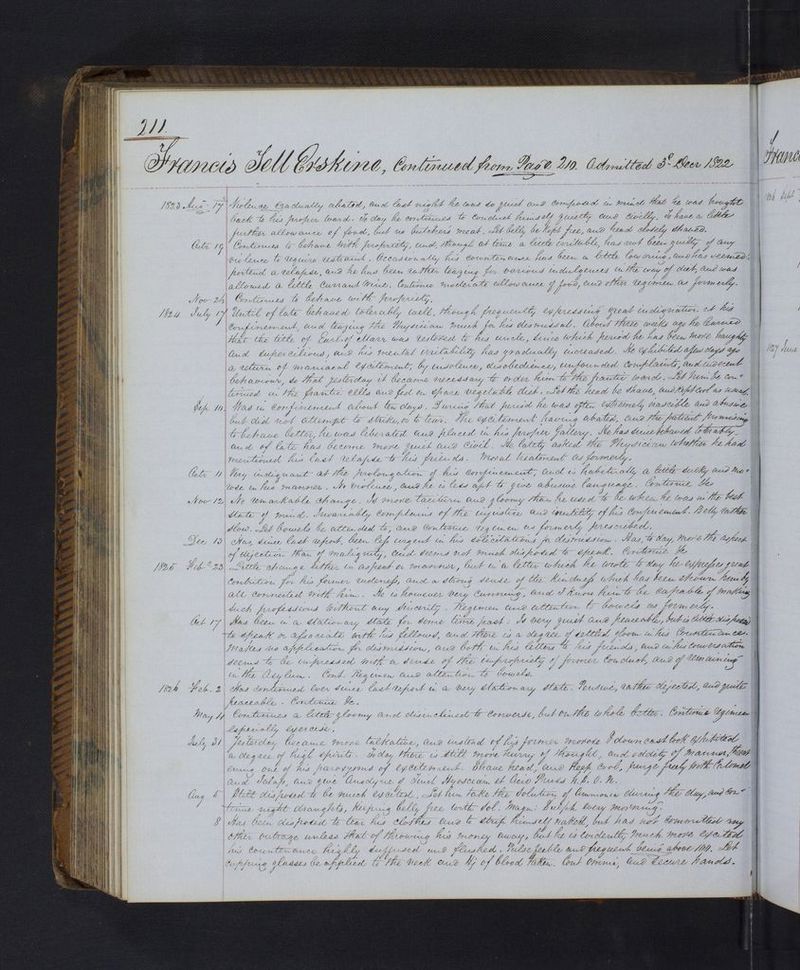 211.
Francis Tell Erskine, Continued from Page 210. Admitted 3d Decr 1822
1823 Aug 17 Violence gradually abated, and last night he was so quiet and composed in mind that he was brought
back to his proper ward. To day he continues to conduct himself quietly and civilly. To have a little
further allowance of food, but no butchers meat. Let belly be kept free, and head closely shaved.
Octr 19 Continues to behave with propriety, and, though at times a little irritable, has not been guilty of any
violence to require restraint. Occasionally his countenance has been a little lowering, and has seemed
portend a relapse, and he has been rather teazing for various indulgences in the way of diet, and was
allowed a little currant wine. Continue moderate allowance of food, and other regimen as formerly.
Nov 24 Continues to behave with propriety.
1824 July 17 Until of late behaved tolerably well, though frequently expressing great indignation at his
confinement, and teazing the Physician much for his dismissal. About three weeks ago he learned
that the title of Earl of Marr was restored to his uncle, since which period he has been more haughty
and supercilious, and his mental irritability has gradually increased. He exhibited a few days ago
a return of maniacal excitement, by insolence, disobedience, unfounded complaints, and indecent
behaviour, so that yesterday it became necessary to order him to the frantic ward. Let him be con-
tinued in the frantic cells and fed on spare vegetable diet. Let the head be shaved, and kept cool as usual.
Sep. 10 Was in confinement about ten days. During that period he was often extremely irascible and abusive
but did not attempt to strike, or to tear. The excitement having abated, and the patient promising
to behave better, he was liberated and placed in his proper Gallery. He has since behaved tolerably
and of late has become more quiet and civil. He lately asked the Physician whether he had
mentioned his last relapse to his friends. Moral treatment as formerly.
Octr 11 Very indignant at the prolongation of his confinement, and is habitually a little sulky and mo-
rose in his manner. No violence, and he is less apt to give abusive language. Continue &c
Nov 12 No remarkable change. Is more taciturn and gloomy than he used to be when he was in the best
state of mind. Invariably complains of the injustice and inutility of his confinement. Belly rather
slow. Let bowels be attended to, and continue regimen as formerly prescribed.
Dec 13 Has, since last report, been less urgent in his solicitations for dismission. Has, to day, more the aspect
of dejection than of malignity, and seems not much disposed to speak. Continue &c
1825 Feb. 23 Little change either in aspect or manner, but in a letter which he wrote to day he expresses great
contrition for his former rudeness, and a strong sense of the kindness which has been shown him by
all connected with him. He is however very cunning, and I know him to be capable of making
such professions without any sincerity. Regimen and attention to bowels as formerly.
Oct 17 Has been in a stationary state for some time past. Is very quiet and peaceable, but is little disposed
to speak or associate with his fellows, and there is a degree of settled gloom in his Countenance.
Makes no application for dismission, and both in his letters to his friends, and in his conversation
seems to be impressed with a sense of the impropriety of former conduct, and of remaining
in the Asylum. Cont. Regimen and attention to bowels.
1826 Feb. 2 Has continued ever since last report in a very stationary state. Pensive, rather dejected, and quite
peaceable. Continue &c.
May 11 Continues a little gloomy and disinclined to converse, but on the whole better. Continue regimen
especially exercise.
July 31 Yesterday became more talkative, and instead of his former morose & downcast look exhibited
a degree of high spirits. To day there is still more hurry of thought, and avidity of manner, threat-
ening one of his paroxysms of excitement. Shave head, and keep cool, purge freely with Calomel
and Jalap, and give Anodyne of Tinct Hyosciam et Acid Pruss h. s.
Aug 5 Still disposed to be much excited. Let him take the Solution of Ammonia during the day, and con-
tinue night draughts, keeping belly free with Sol. Magn. Sulph every morning.
8 Has been disposed to tear his clothes and to strip himself naked, but has not committed any
other outrage unless that of throwing his money away, but he is evidently much more excited
his countenance highly suffused and flushed. Pulse feeble and frequent being above 100. Let
cupping glasses be applied to the neck and of blood taken. Cont omnia, and secure hands.
Franc